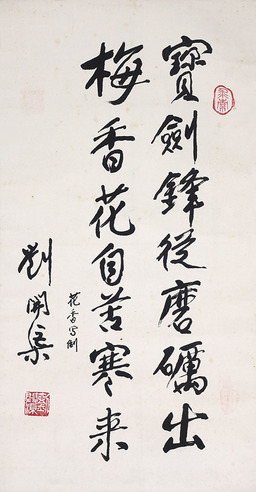 寶劍鋒從磨礪出
梅香花自苦寒来
花香寫倒
劉開渠